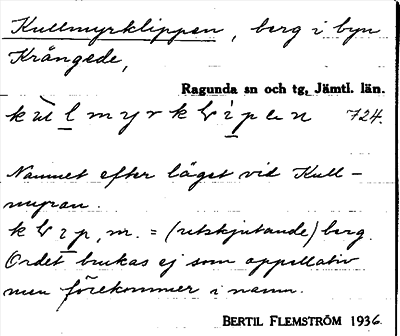 Kullmyrklippen, berg i byn
Krångede,
Ragunda sn och tg, Jämtl. län.
724.
Namnet efter läget vid Kull-
myran.
m. = (utskjutande) berg.
Ordet brukas ej som appellativ
men förekommer i namn.
BERTIL FLEMSTRÖM 1936.